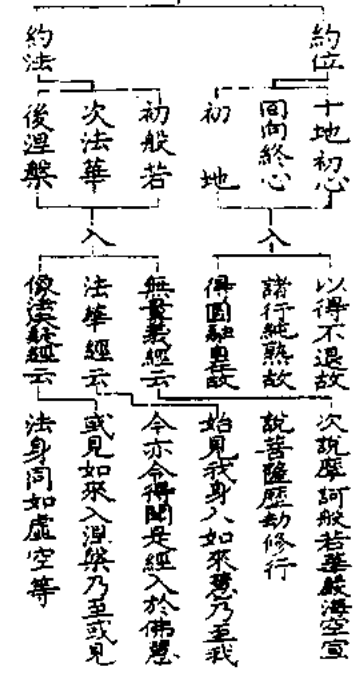 約位
十地初心
回向終心
初地
入
以得不退故
諸行純熟故
得圓融果故
約法
初般若
次法華
後涅槃
入
無量義經云
法華經云
像法決疑經云
次說摩訶般若華嚴海空宣
說菩薩歷劫修行
始見我身入如來慧乃至我
今亦令得聞是經入於佛慧
或見如來入涅槃乃至或見
法身同如虛空等